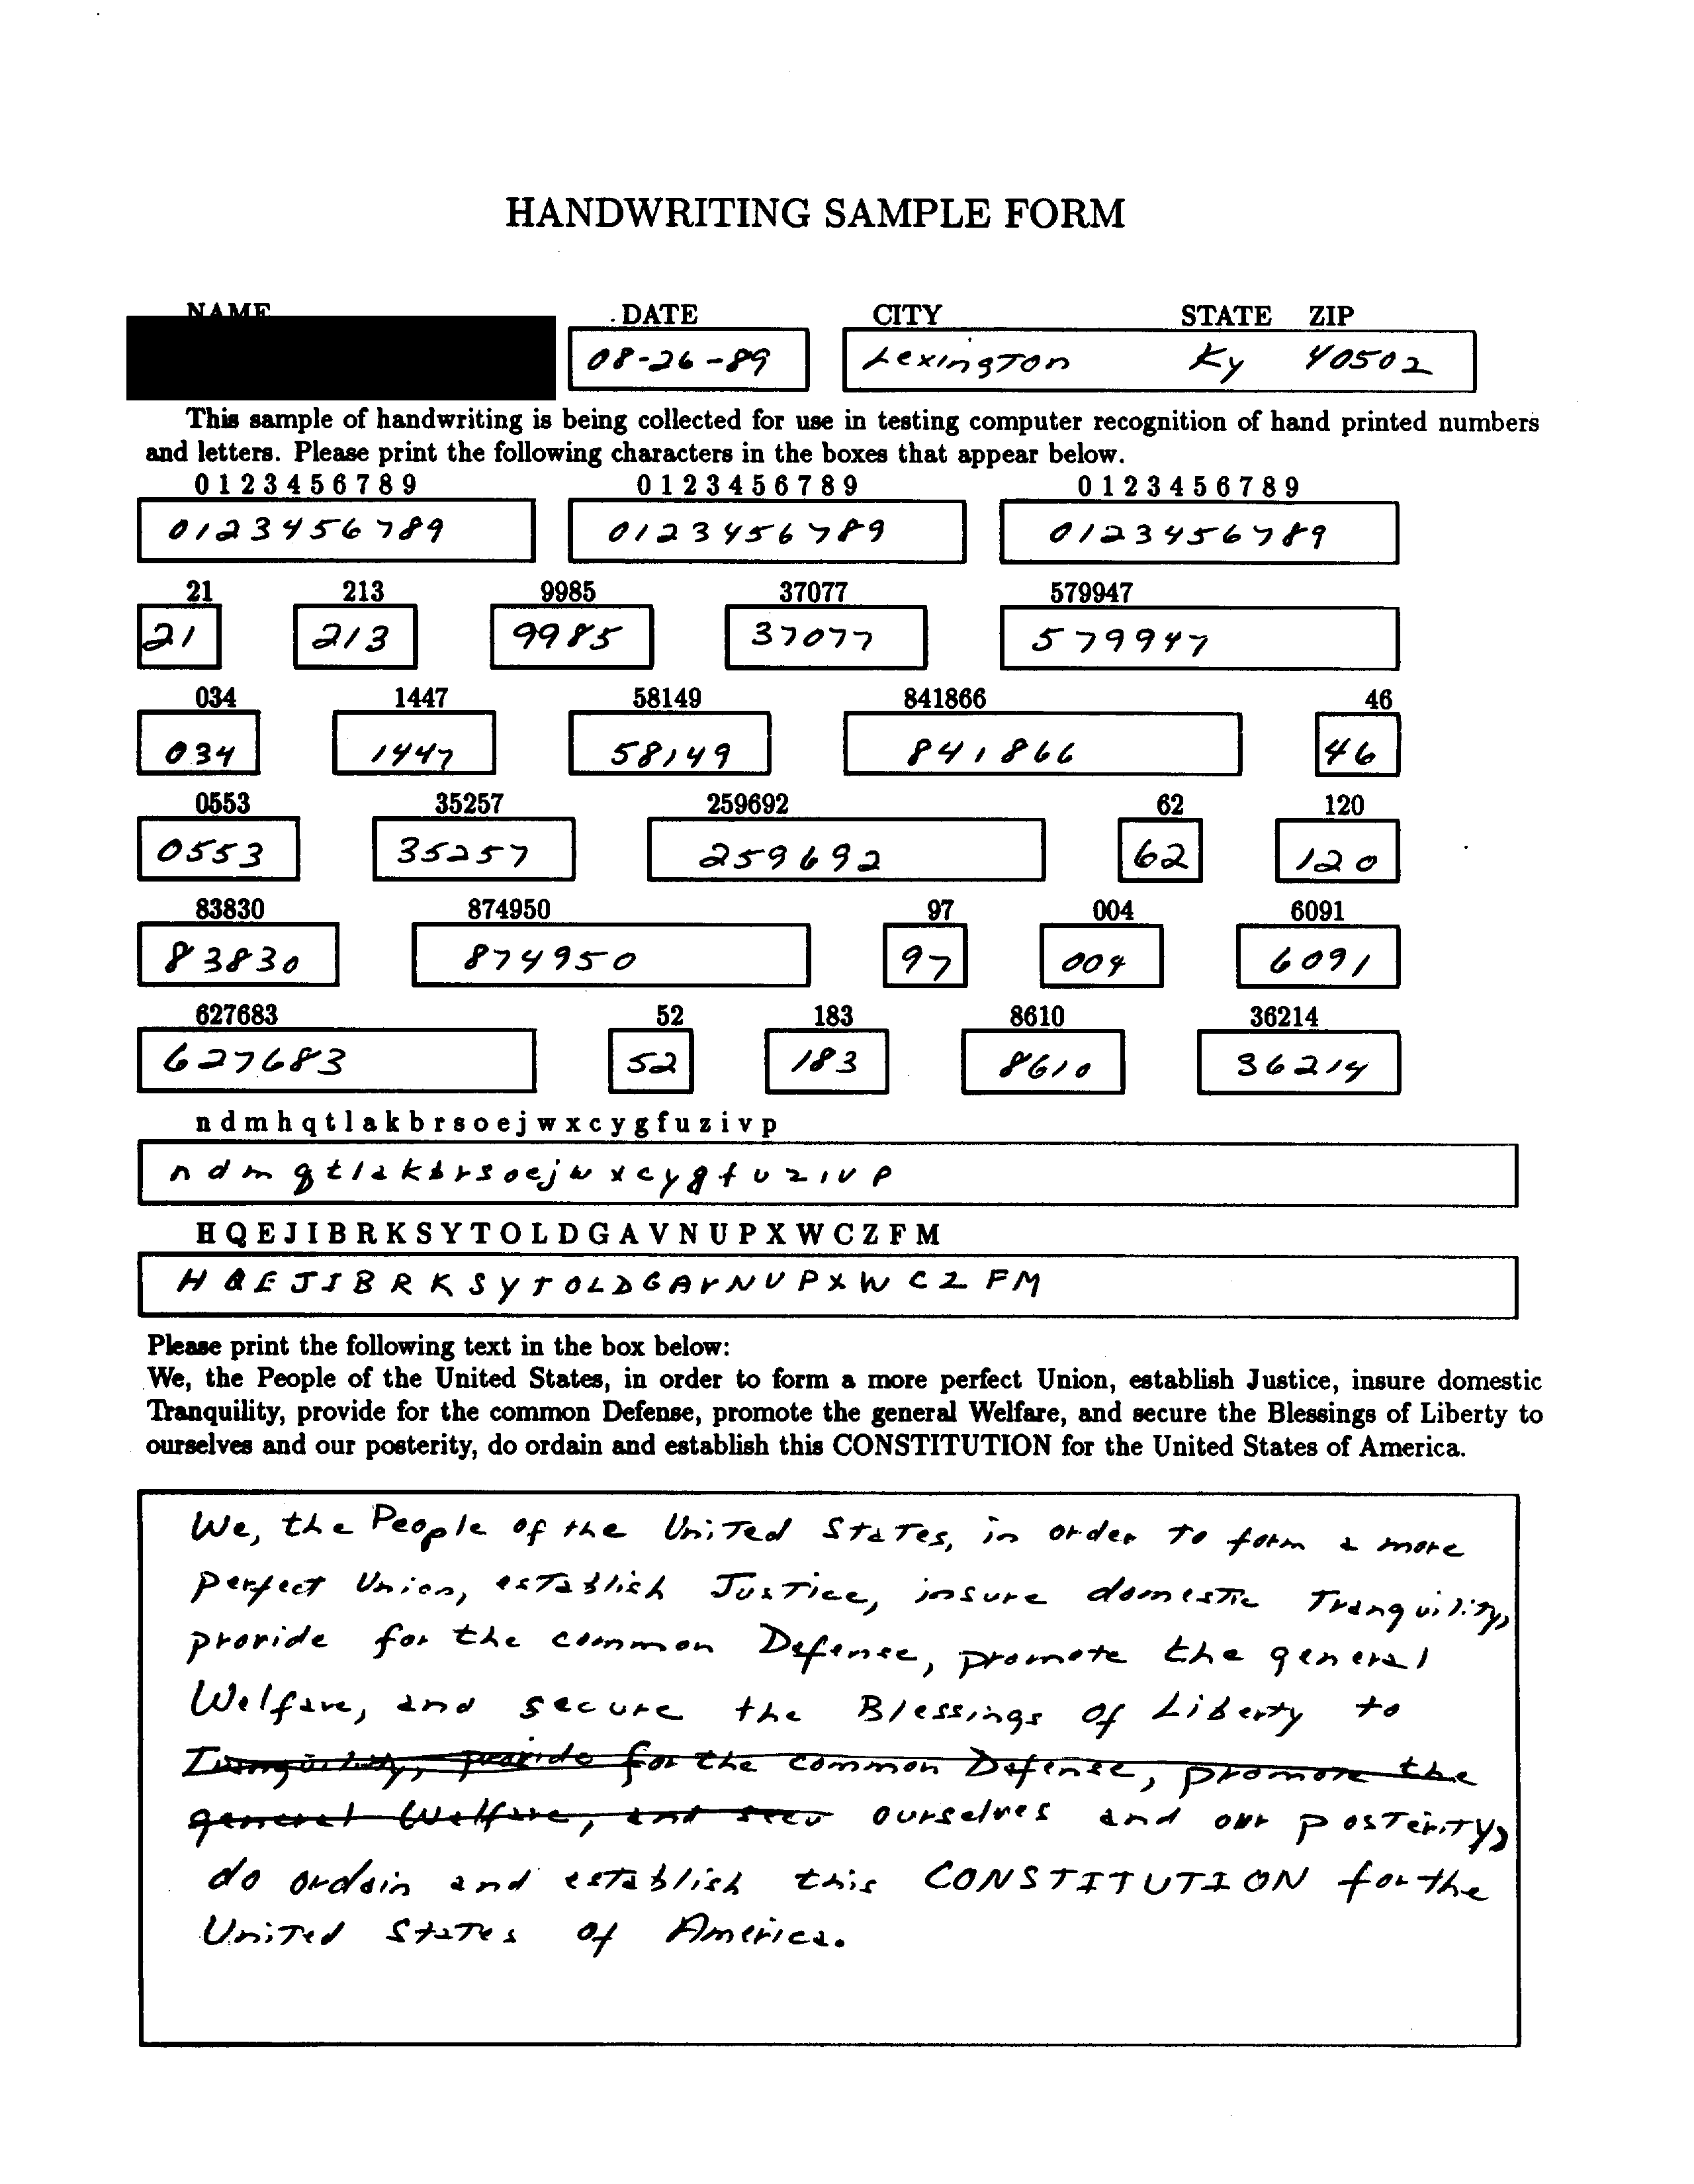 HANDWRITING SAMPLE FORM
NAME DATE CITY STATE ZIP
08-26-89 Lexington Ky 40502
This sample of handwriting is being collected for use in testing computer recognition of hand printed numbers
and letters. Please print the following characters in the boxes that appear below.
0 1 2 3 4 5 6 7 8 9 0 1 2 3 4 5 6 7 8 9 0 1 2 3 4 5 6 7 8 9
0123456789 0123456789 0123456789
21 213 9985 37077 579947
21 213 9985 37077 579947
034 1447 58149 841866 46
034 1447 58149 841866 46
0553 35257 259692 62 120
0553 35257 259692 62 120
83830 874950 97 004 6091
83830 874950 97 004 6091
627683 52 183 8610 36214
627683 52 183 8610 36214
n d m h q t l a k b r s o e j w x c y g f u z i v p
n d m q t l a k b r s o e j w x c y g f u z i v p
H Q E J I B R K S Y T O L D G A V N U P X W C Z F M
H Q E J I B R K S Y T O L D G A V N U P X W C Z F M
Please print the following text in the box below:
We, the People of the United States, in order to form a more perfect Union, establish Justice, insure domestic
Tranquility, provide for the common Defense, promote the general Welfare, and secure the Blessings of Liberty to
ourselves and our posterity, do ordain and establish this CONSTITUTION for the United States of America.
We, the People of the United States, in order to form a more
perfect Union, establish Justice, insure domestic Tranquility,
provide for the common Defense, promote the general
Welfare, and secure the Blessings of Liberty to
Tranquility, provide for the common Defense, promote the
general Welfare, and secu ourselves and our posterity,
do ordain and establish this CONSTITUTION for the
United States of America.